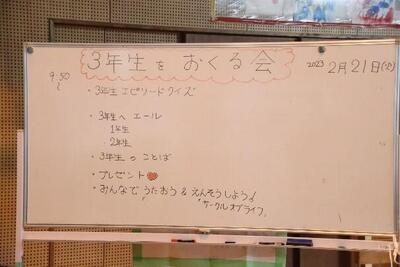 3年生をおくる会
2023 2月21日(火)
9:50〜
・3年生エピソードクイズ
・3年生へ エール
1年生
2年生
・3年生のことば
・プレゼント❤
・みんなで うたおう & えんそうしよう♪
"サークルオブライフ"